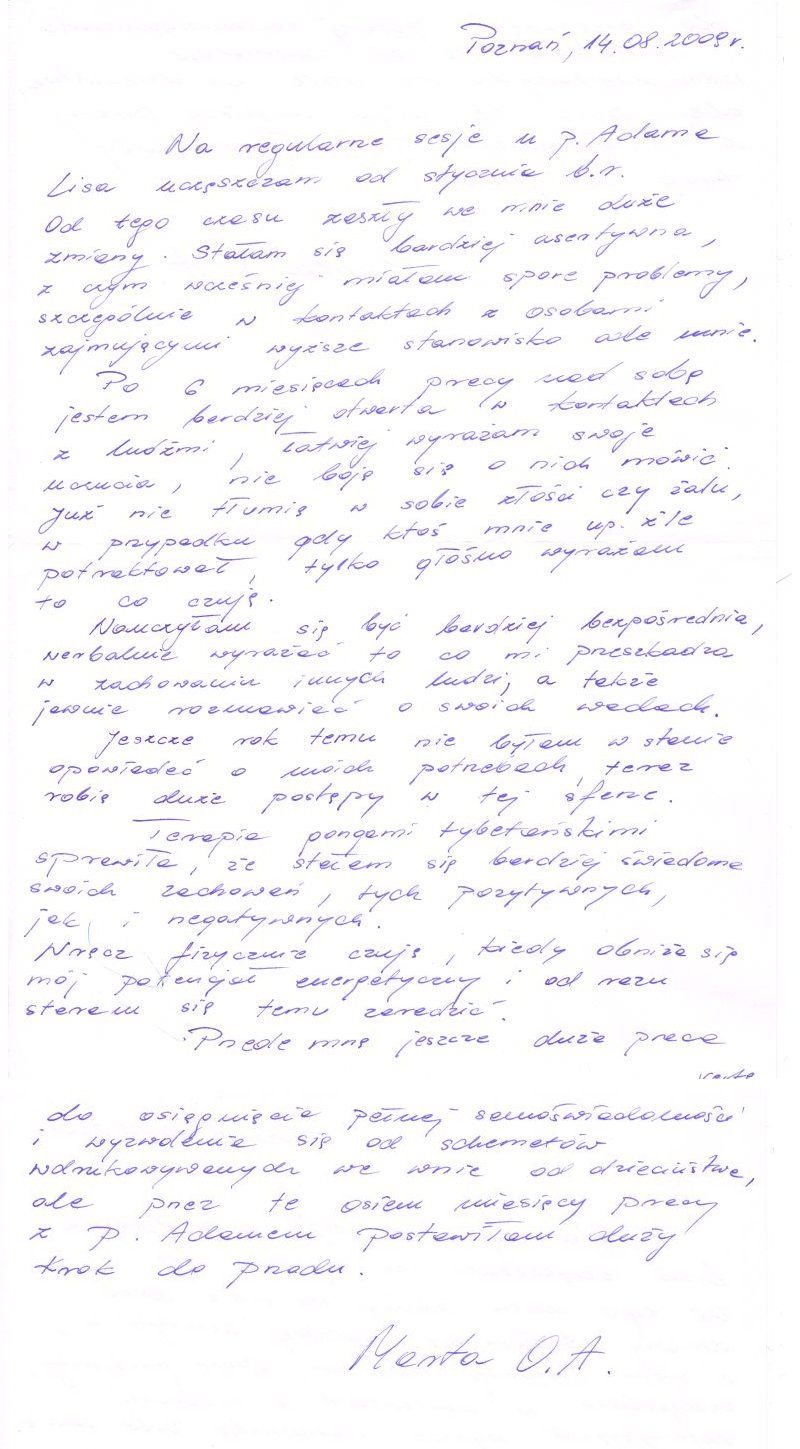 Poznań, 14.08.2009 r.
Na regularne sesje u p. Adama
Lisa uczęszczam od stycznia b.r.
Od tego czasu zaszły we mnie duże
zmiany. Stałam się bardziej asertywna,
z czym wcześniej miałam spore problemy,
szczególnie w kontaktach z osobami
zajmującymi wyższe stanowisko ode mnie.
Po 6 miesiącach pracy nad sobą
jestem bardziej otwarta w kontaktach
z ludźmi, łatwiej wyrażam swoje
uczucia, nie boję się o nich mówić.
Już nie tłumię w sobie złości czy żalu,
w przypadku gdy ktoś mnie np. źle
potraktował, tylko głośno wyrażam
to co czuję.
Nauczyłam się być bardziej bezpośrednia,
werbalnie wyrażać to co mi przeszkadza
w zachowaniu innych ludzi, a także
jawnie rozmawiać o swoich wadach.
Jeszcze rok temu nie byłam w stanie
opowiadać o moich potrzebach, teraz
robię duże postępy w tej sferze.
Terapia gongami tybetańskimi
sprawiła, że stałam się bardziej świadoma
swoich zachowań, tych pozytywnych,
jak i negatywnych.
Wręcz fizycznie czuję, kiedy obniża się
mój potencjał energetyczny i od razu
staram się temu zaradzić.
Przede mną jeszcze duża praca
do osiągnięcia pełnej samoświadomości
i wyzwolenia się od schematów
wdrukowywanych we mnie od dzieciństwa,
ale przez te osiem miesięcy pracy
z p. Adamem postawiłam duży
krok do przodu.
Marta O.A.